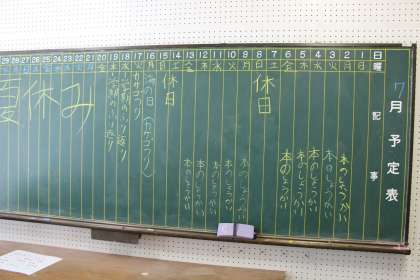 7月予定表
日 1 2 3 4 5 6 7 8 9 10 11 12 13 14 15 16 17 18 19 20 21 22 23 24 25 26 27 28 29
曜 日 月 火 水 木 金 土 日 月 火 水 木 金 土 日 月 火 水 木 金
記事
本のしょうかい
本のしょうかい
本のしょうかい
本のしょうかい
本のしょうかい
休日
本のしょうかい
本のしょうかい
本のしょうかい
本のしょうかい
本のしょうかい
休日
海の日
一学期のふり返り
一学期のふり返り
夏休み